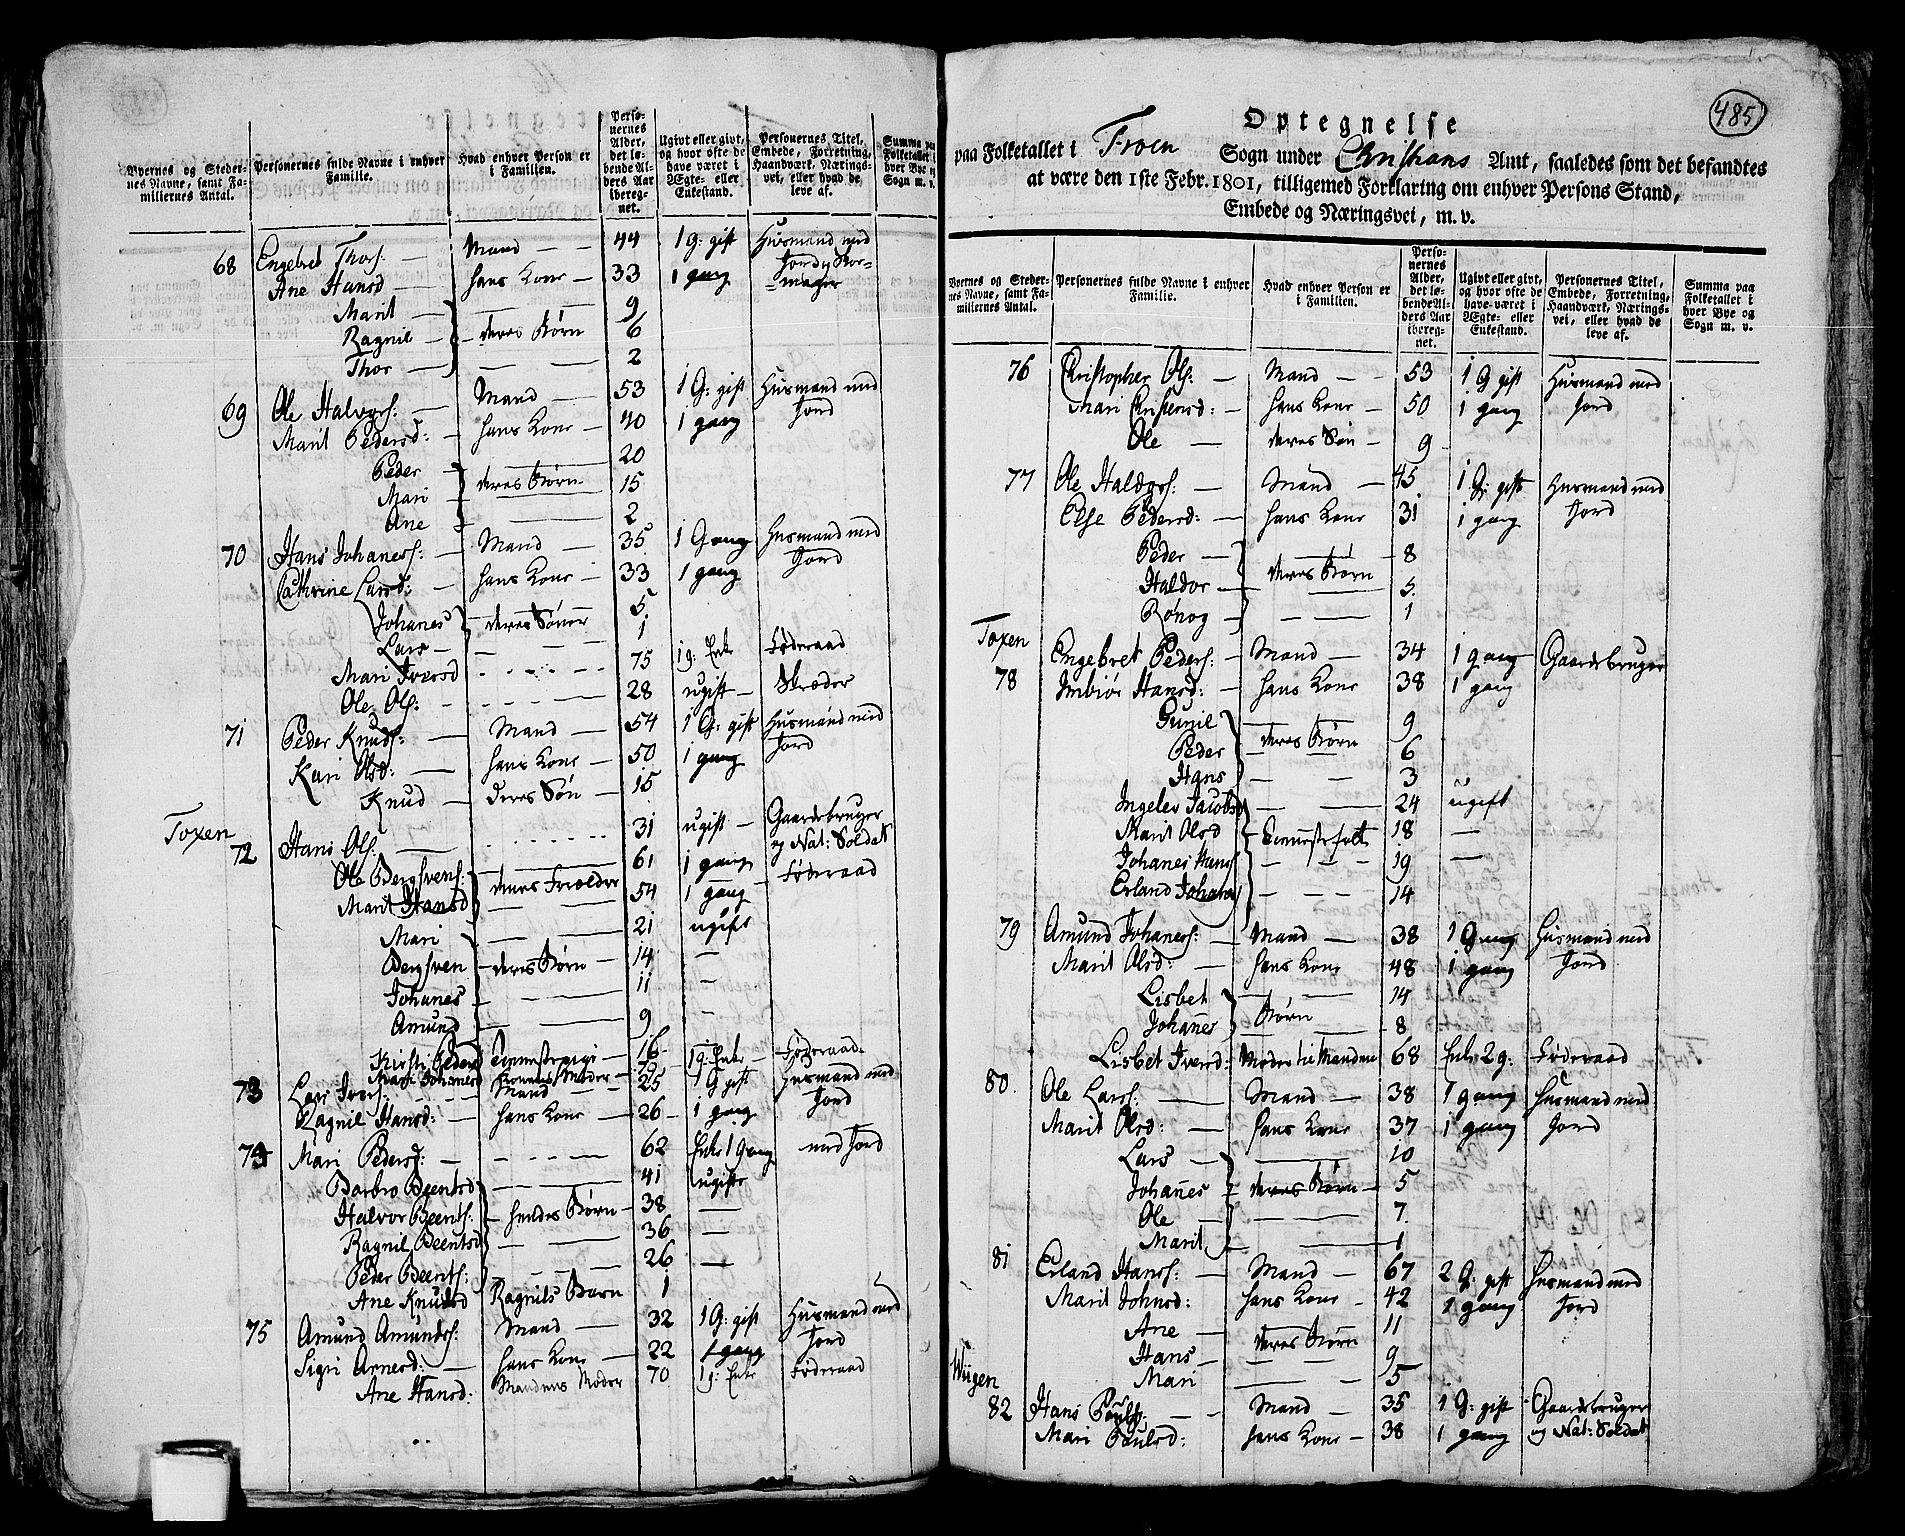 Byernes og Stedernes Navne, samt Familiernes Antal. Personernes fulde Navne i enhver Familie. Hvad enhver Person er i Familien. Personernes Alder, det løbende Alders Aar iberegnet. Ugivt eller givt, og hvor ofte de have været i Ægte- eller Enkestand. Personernes Titel, Embede, Forretning, Haandværk, Næringsvei, eller hvad de leve af. Summa paa Folketallet i hver Bye og Sogn m. v.
68 Engebret Thors: — Mand — 44 1 G: gift Huusmand med
Ane Hansd — hans Kone — 33 1 gang Jord og Skomager
Marit 9
Ragnil — deres Børn — 6
Thor — 2
69 Ole Halvors: — Mand — 53 1 G: gift Huusmand med
Marit Pedersd: — hans Kone — 40 1 gang Jord
Peder 20
Mari deres Børn 15
Ane 2
70 Hans Johaness: — Mand — 35 1 Gang Huusmand med
Cathrine Larsd: — hans Kone — 33 1 gang Jord
Johanes deres Sønner 5
Lars — 1
Mari Iversd 75 1 g: Enke Føderaad
Ole Ols: 28 ugift — Skræder
71 Peder Knuds: — Mand — 54 1 G: gift Huusmand med
Kari Olsd: — hans Kone — 50 1 gang Jord
Knud — deres Søn — 15
Toxen
72 Hans Ols: 31 ugift — Gaardebruger og Nat: Soldat
Ole Bergsvens: 61 1 gang Føderaad
Marit Hansd deres Forælder 54 1 gang
Mari 21 ugift
Bergsven — deres Børn — 14 —
Johanes 11 —
Amund 9 —
Kirsti Pedersd tienestepige — 16
Mari Johanesd Konens Moder — 79 1 g: Enke — Føderaad
73 Lars Ivers: Mand — 25 1 G gift Huusmand med
Ragnil Hansd: — hans Kone — 26 1 gang Jord
74 Mari Pedersd: — 62 Enke 1 Gang med Jord
Barbro Beentsd 41 ugifte
Halvor Beents: — hendes Børn — 38 —
Ragnil Beentsd 36 —
Peder Beents: 26 —
Ane Knudsd Ragnils Barn 1
75 Amund Amunds: Mand — 32 1 G: gift Huusmand med
Sigri Arnesd: — hans Kone — 22 1 gang Jord
Ane Hansd: Mandens Moder 70 1 g: Enke Føderaad
485
Optegnelse
paa Folketallet i Froen Sogn under Christians Amt, saaledes som det befandtes
at være den 1ste Febr. 1801, tilligemed Forklaring om enhver Persons Stand,
Embede og Næringsvei, m. v.
Byernes og Stedernes Navne, samt Familiernes Antal. Personernes fulde Navne i enhver Familie. Hvad enhver Person er i Familien. Personernes Alder, det løbende Alders Aar iberegnet. Ugivt eller givt, og hvor ofte de have været i Ægte- eller Enkestand. Personernes Titel, Embede, Forretning, Haandværk, Næringsvei, eller hvad de leve af. Summa paa Folketallet i hver Bye og Sogn m. v.
76 Christopher Ols: — Mand — 53 1 G gift Huusmand med
Mari Christensd: — hans Kone — 50 1 gang Jord
Ole — deres Søn — 9
77 Ole Haldors: — Mand — 45 1 G: gift Huusmand med
Else Pedersd: — hans Kone — 31 1 gang Jord
Peder — 8
Haldor — deres Børn 5
Rønog — 1
Toxen
78 Engebret Peders: — Mand — 34 1 gang Gaardebruger
Imbiør Hansd: — hans Kone — 38 1 gang
Gunil 9
Peder deres Børn 6
Hans — 3
Ingelev Jacobsd — 24 ugift
Marit Olsd Tienestefolk 18 —
Johanes Hans: 19 —
Erland Johanes: 14
79 Amund Johaness: — Mand — 38 1 Gang Huusmand med
Marit Olsd: — hans Kone — 48 1 gang Jord
Lisbet 14
Johanes Børn 8
Lisbet Iversd: Moder til Manden 68 Enke 2 g: Føderaad
80 Ole Larss: — Mand — 38 1 gang Huusmand med
Marit Olsd: — hans Kone 37 1 gang Jord
Lars — 10
Johanes — deres Børn — 5
Ole — 7
Marit 1
81 Erland Hanss: — Mand — 67 2 G: gift Huusmand med
Marit Johnsd: hans Kone — 42 1 gang Jord
Ane — 11
Hans — deres Børn 9
Mari 5
Wiigen
82 Hans Pouls: — Mand — 35 1 G: gift Gaardebruger
Mari Poulsd: hans Kone — 38 1 gang og Nat: Soldat